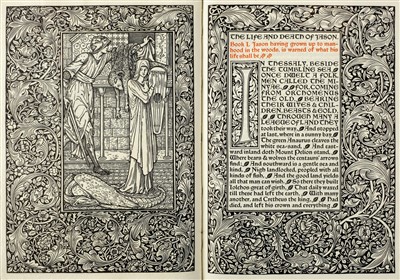 THE LIFE AND DEATH OF JASON.
Book I. Jason having grown up to man-
hood in the woods, is warned of what his
life shall be
IN THESSALY, BESIDE
THE TUMBLING SEA,
ONCE DWELT A FOLK
MEN CALLED THE MI-
NYAE,
FOR COMING
FROM ORCHOMENUS
THE OLD,
BEARING
THEIR WIVES & CHIL-
DREN, BEASTS & GOLD,
THROUGH MANY A
LEAGUE OF LAND THEY
took their way, And stopped
at last, where in a sunny bay
The green Anaurus cleaves the
white sea-sand, And east-
ward inland doth Mount Pelion stand,
Where bears & wolves the centaurs' arrows
find; And southward is a gentle sea and
kind, Nigh landlocked, peopled with all
kinds of fish, And the good land yields
all that man can wish. So there they built
Iolchos great of girth, That daily waxed
till these had left the earth, With many
another, and Cretheus the king, Had
died, and left his crown and everything